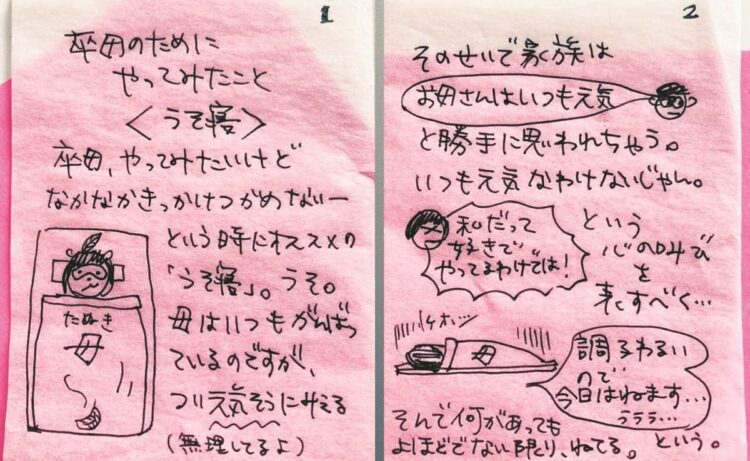 1
卒母のために
やってみたこと
＜うそ寝＞
卒母、やってみたいけど
なかなかきっかけつかめないー
という時にオススメの
「うそ寝」。うそ。
母はいつもがんばっ
ているのですが、
つい元気そうにみえる
(無理してるよ)
たぬき
母
2
そのせいで家族は
お母さんはいつも元気
と勝手に思われちゃう。
いつも元気なわけないじゃん。
私だって
好きで
やってるわけでは！
という
心の叫び
を
表すべく…
ケホッ
母
調子わるい
ので
今日はねます…
ううう…
そんで何があっても
よほどでない限り、ねてる。という。